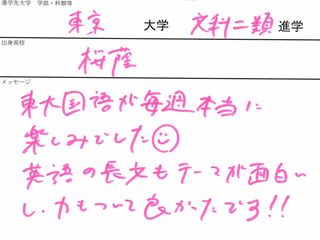 進学先大学 学部・科類等
東京 大学 文科二類 進学
出身高校
桜蔭
メッセージ
東大国語が毎週本当に
楽しみでした☺
英語の長文もテーマが面白い
し、力もついて良かったです!!